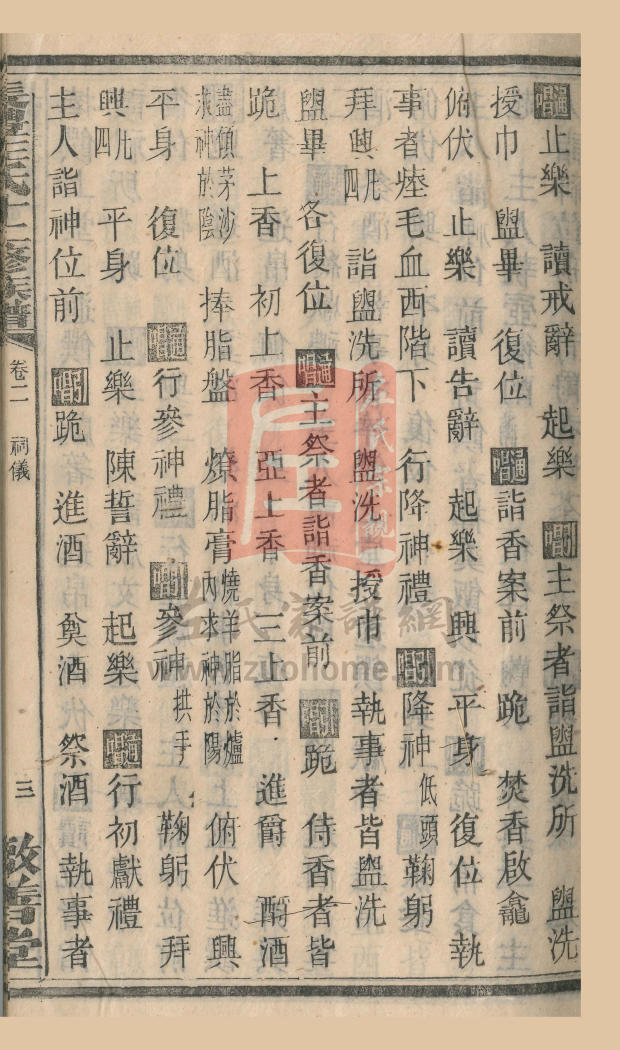 通唱止樂 讀戒辭 起樂 引唱主祭者詣盥洗所 盥洗
授巾 盥畢 復位 通唱詣香案前 跪 焚香啟龕
俯伏 止樂 讀告辭 起樂 興 平身 復位 執
事者瘞毛血西階下 行降神禮 引唱降神低頭 鞠躬
拜興凡四 詣盥洗所 盥洗 授巾 執事者皆盥洗
盥畢 各復位 通唱主祭者詣香案前 引唱跪 侍香者皆
跪 上香 初上香 亞上香 三上香 進爵 酹酒
盡傾茅沙求神於陰 捧脂盤 燎脂膏燒羊脂於爐內求神於陽 俯伏 興
平身 復位 通唱行參神禮 引唱參神拱手 鞠躬 拜
興凡四 平身 止樂 陳誓辭 起樂 通唱行初獻禮
主人詣神位前 引唱跪 進酒 奠酒 祭酒 執事者
氏十二修族譜 卷二 祠儀 三 敬善堂
左氏家譜網
www.zuohome.com